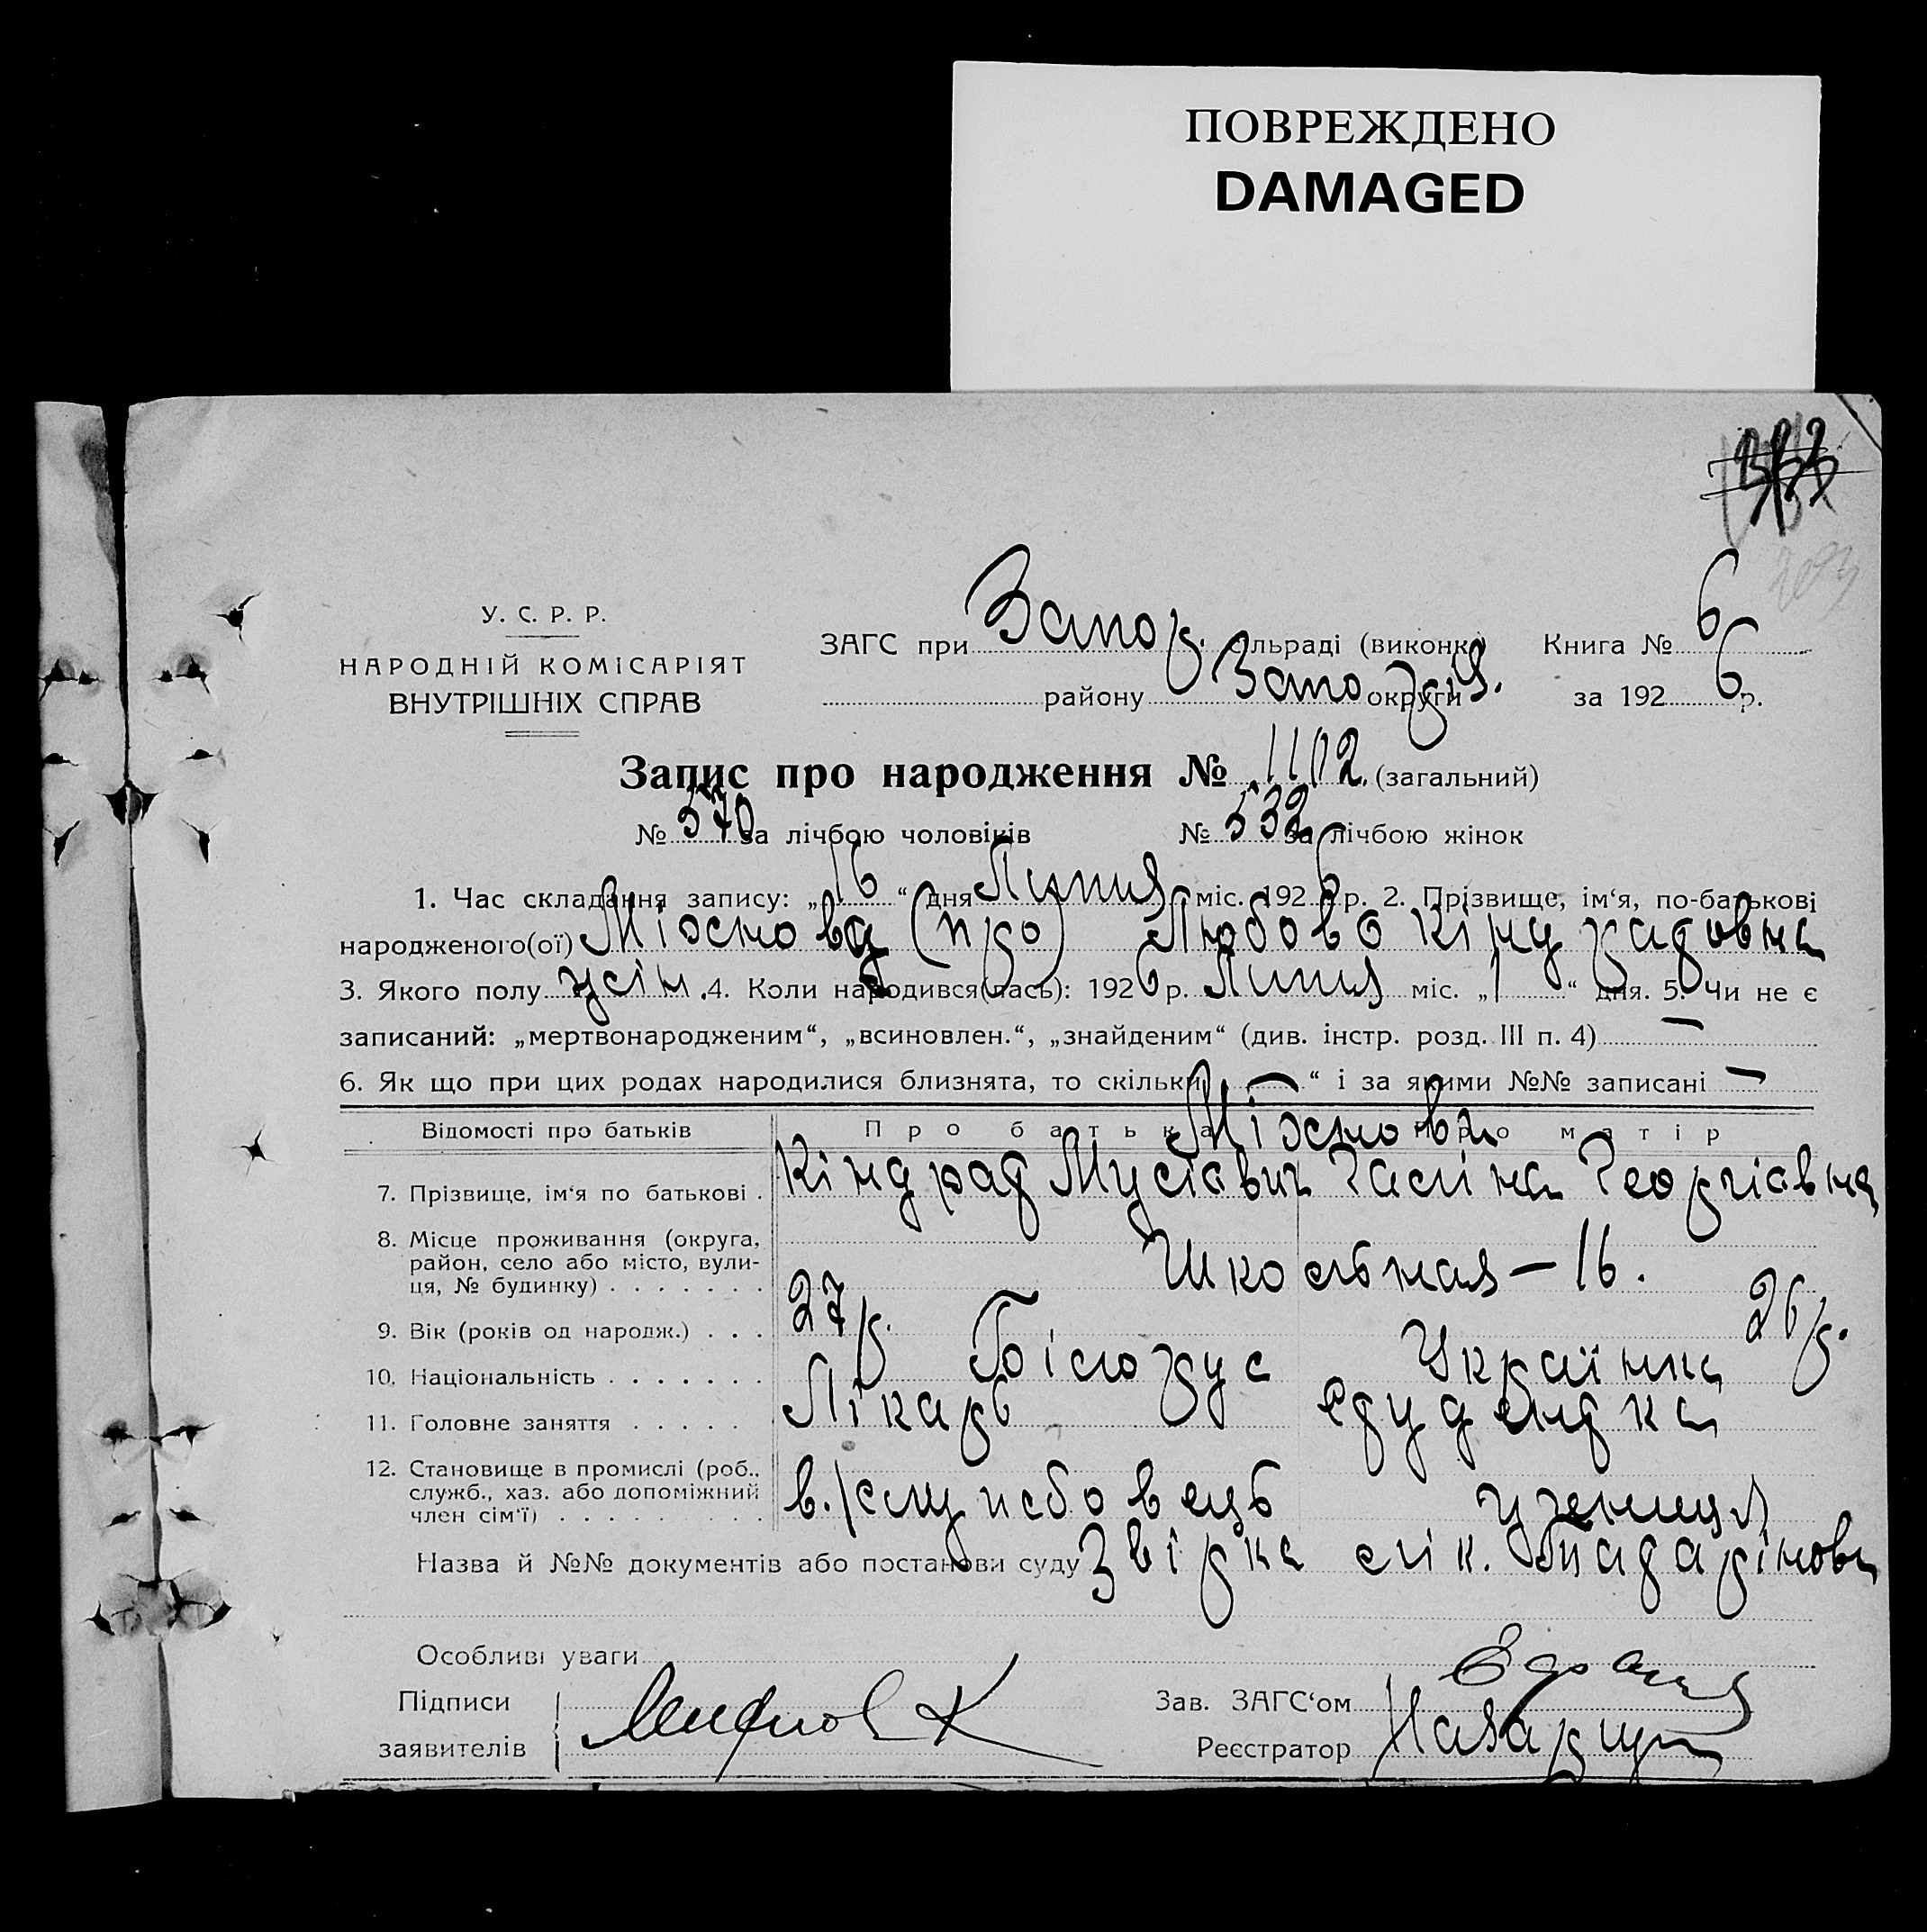 ПОВРЕЖДЕНО
DAMAGED
У. С. Р. Р.
НАРОДНІЙ КОМІСАРІЯТ
ВНУТРІШНІХ СПРАВ
ЗАГС при Запор. льраді (виконк) Книга № 6
району Запо округи за 1926 р.
Запис про народження № 1102 (загальний)
№ 570 за лічбою чоловіків № 532 за лічбою жінок
1. Час складання запису: „16“ дня Липня міс. 1926 р. 2. Прізвище, ім‘я, по-батькові
народженого(ої) (про) Любовь Кіндрадовна
3. Якого полу жін. 4. Коли народився(лась): 1926 р. Липня міс. „1“ дня. 5. Чи не є
записаний: „мертвонародженим“, „всиновлен.“, „знайденим“ (див. інстр. розд. III п. 4) —
6. Як що при цих родах народилися близнята, то скільки „—“ і за якими №№ записані —
Відомості про батьків Про батька Про матір
7. Прізвище, ім‘я по батькові . Кіндрад Мусієвич Галіна Георгієвна
8. Місце проживання (округа,
район, село або місто, вули-
ця, № будинку) . . . . . . . Школьная — 16.
9. Вік (років од народж.) . . . 27 р. 26 р.
10. Національність . . . . . . . Білорус Українка
11. Головне заняття . . . . . Лікарь
12. Становище в промислі (роб.,
служб., хаз. або допоміжний
член сім‘ї) . . . . . . . . . учениця
Назва й №№ документів або постанови суду Звірка лік.
Особливі уваги
Підписи
заявителів
Зав. ЗАГС‘ом
Реєстратор